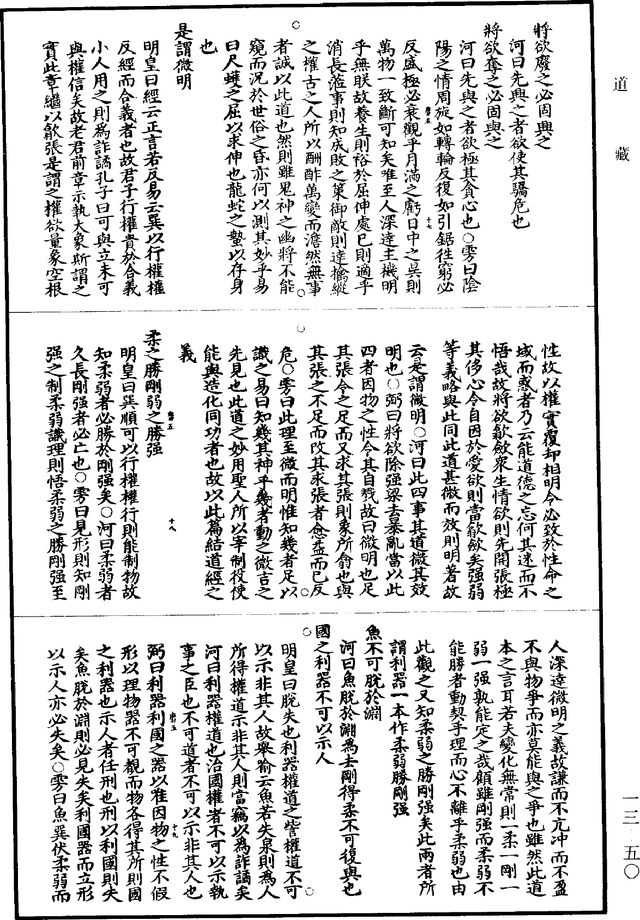 道藏
將欲廢之必固興之
河曰先興之者欲使其驕危也
將欲奪之必固與之
河曰先與之者欲極其貪心也○雱曰陰
陽之情周旋如轉輪反復如引鋸往窮必
反盛極必衰觀乎月滿之虧日中之昃則
萬物一致斷可知矣唯至人深達主機明
乎無朕故養生則裕於屈伸處已則適乎
消長涖事則知成敗之策御敵則達擒縱
之權古之人所以酬酢萬變而澹然無事
者誠以此道也然則雖鬼神之幽將不能
窺而況於世俗之昏亦何以測其妙乎易
曰尺蠖之屈以求伸也龍蛇之蟄以存身
也
是謂微明
明皇曰經云正言若反易云巽以行權權
反經而合義者也故君子行權貴於合義
小人用之則為詐譎孔子曰可與立未可
與權信矣故老君前章示執大象斯謂之
實此章繼以歙張是謂之權欲量衆空根
性故以權實覆却相明令必致於性命之
域而惑者乃云能道德之忘何其迷而不
悟哉故將欲歙斂衆生情欲則先開張極
其侈心令自困於愛欲則當歙斂矣强弱
等義略與此同此道甚微而效則明著故
云是謂微明○河曰此四事其道微其效
明也○弼曰將欲除强梁去暴亂當以此
四者因物之性令其自戮故曰微明也足
其張令之足而又求其張則衆所翕也與
其張之不足而改其求張者愈益而已反
危○雱曰此理至微而明惟知幾者足以
識之易曰知幾其神乎幾者動之微吉之
先見也此道之妙用聖人所以宰制役使
能與造化同功者也故以此篇結道經之
義
柔之勝剛弱之勝强
明皇曰巽順可以行權權行則能制物故
知柔弱者必勝於剛强矣○河曰柔弱者
久長剛强者必亡也○雱曰見形則知剛
强之制柔弱識理則悟柔弱之勝剛强至
人深達微明之義故謙而不亢冲而不盈
不與物爭而亦莫能與之爭也雖然此道
本之言耳若夫變化無常則一柔一剛一
弱一强孰能定之哉顧雖剛强而柔弱不
能勝者動契乎理而心不離乎柔弱也由
此觀之又知柔弱之勝剛强矣此兩者所
謂利器一本作柔弱勝剛强
魚不可脫於淵
河曰魚脫於淵為去剛得柔不可復與也
國之利器不可以示人
明皇曰脫失也利器權道之訾權道不可
以示非其人故舉喻云魚若失泉則為人
所得權道示非其人則當竊以為詐譎矣
河曰利器權道也治國權者不可以示執
事之臣也不可道者不可以示非其人也
弼曰利器利國之器以唯因物之性不假
形以理物器不可覩而物各得其所則國
之利器也示人者任刑也刑以利國則失
矣魚脫於淵則必見失矣利國器而立形
以示人亦必失矣○雱曰魚巽伏柔弱而
一三—五〇